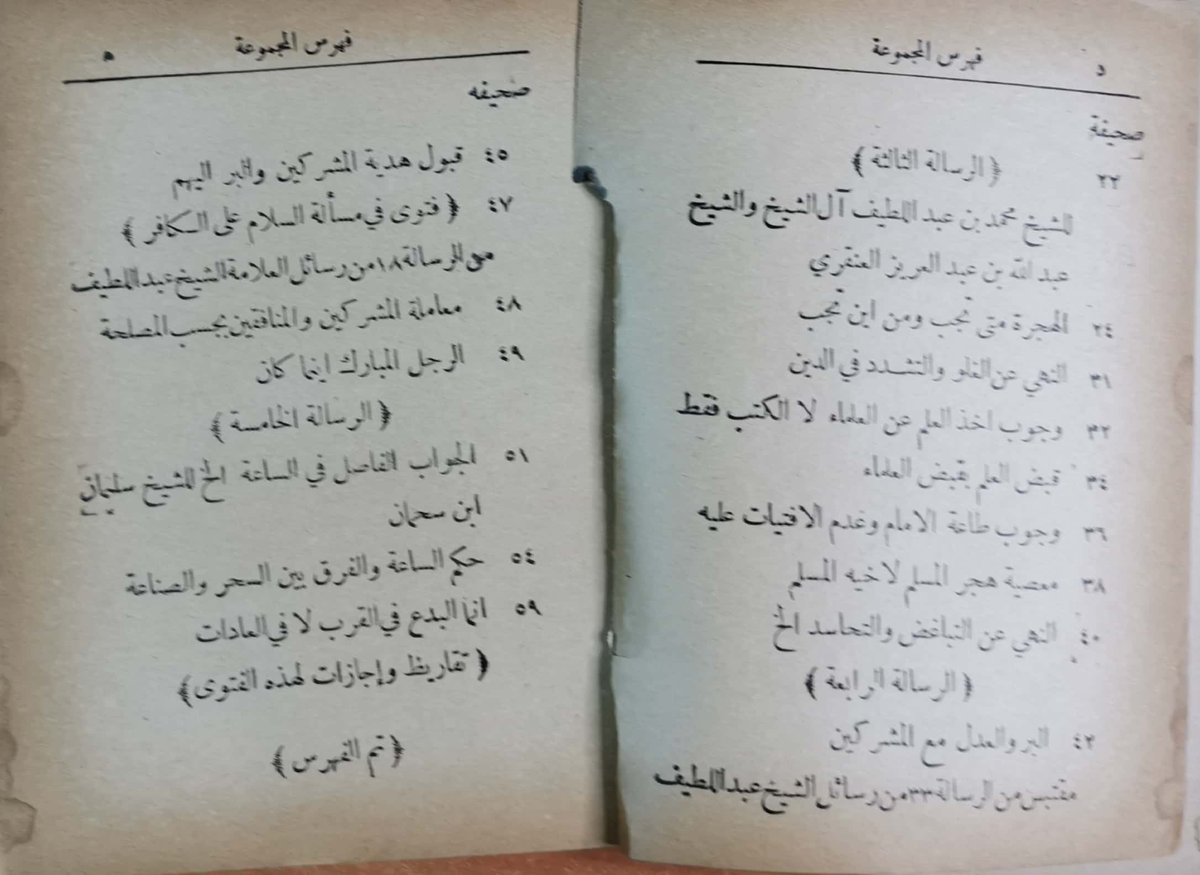 د
فهرس المجموعة
صحيفة
﴿ الرسالة الثالثة ﴾
٢٢ للشيخ محمد بن عبد اللطيف آل الشيخ والشيخ
عبد الله بن عبد العزيز العنقري
٢٤ الهجرة متى تجب ومن اين تجب
٣١ النهي عن الغلو والتشدد في الدين
٣٢ وجوب اخذ العلم عن العلماء لا الكتب فقط
٣٤ قبض العلم بقبض العلماء
٣٦ وجوب طاعة الامام وعدم الافتيات عليه
٣٨ معصية هجر المسلم لاخيه المسلم
٤٠ النهي عن التباغض والتحاسد الخ
﴿ الرسالة الرابعة ﴾
٤٢ البر والعدل مع المشركين
مقتبس من الرسالة ٣٣ من رسائل الشيخ عبد اللطيف
فهرس المجموعة
ه
صحيفه
٤٥ قبول هدية المشركين والبر اليهم
٤٧ ﴿ فتوى في مسألة السلام على الكافر ﴾
من الرسالة ١٨ من رسائل العلامة الشيخ عبد اللطيف
٤٨ معاملة المشركين والمنافقين بحسب المصلحة
٤٩ الرجل المبارك اينما كان
﴿ الرسالة الخامسة ﴾
٥١ الجواب الفاصل في الساعة الخ للشيخ سليمان
ابن سحمان
٥٤ حكم الساعة والفرق بين السحر والصناعة
٥٩ انما البدع في القرب لا في العادات
﴿ تقاريظ وإجازات لهذه الفتوى ﴾
﴿ تم الفهرس ﴾